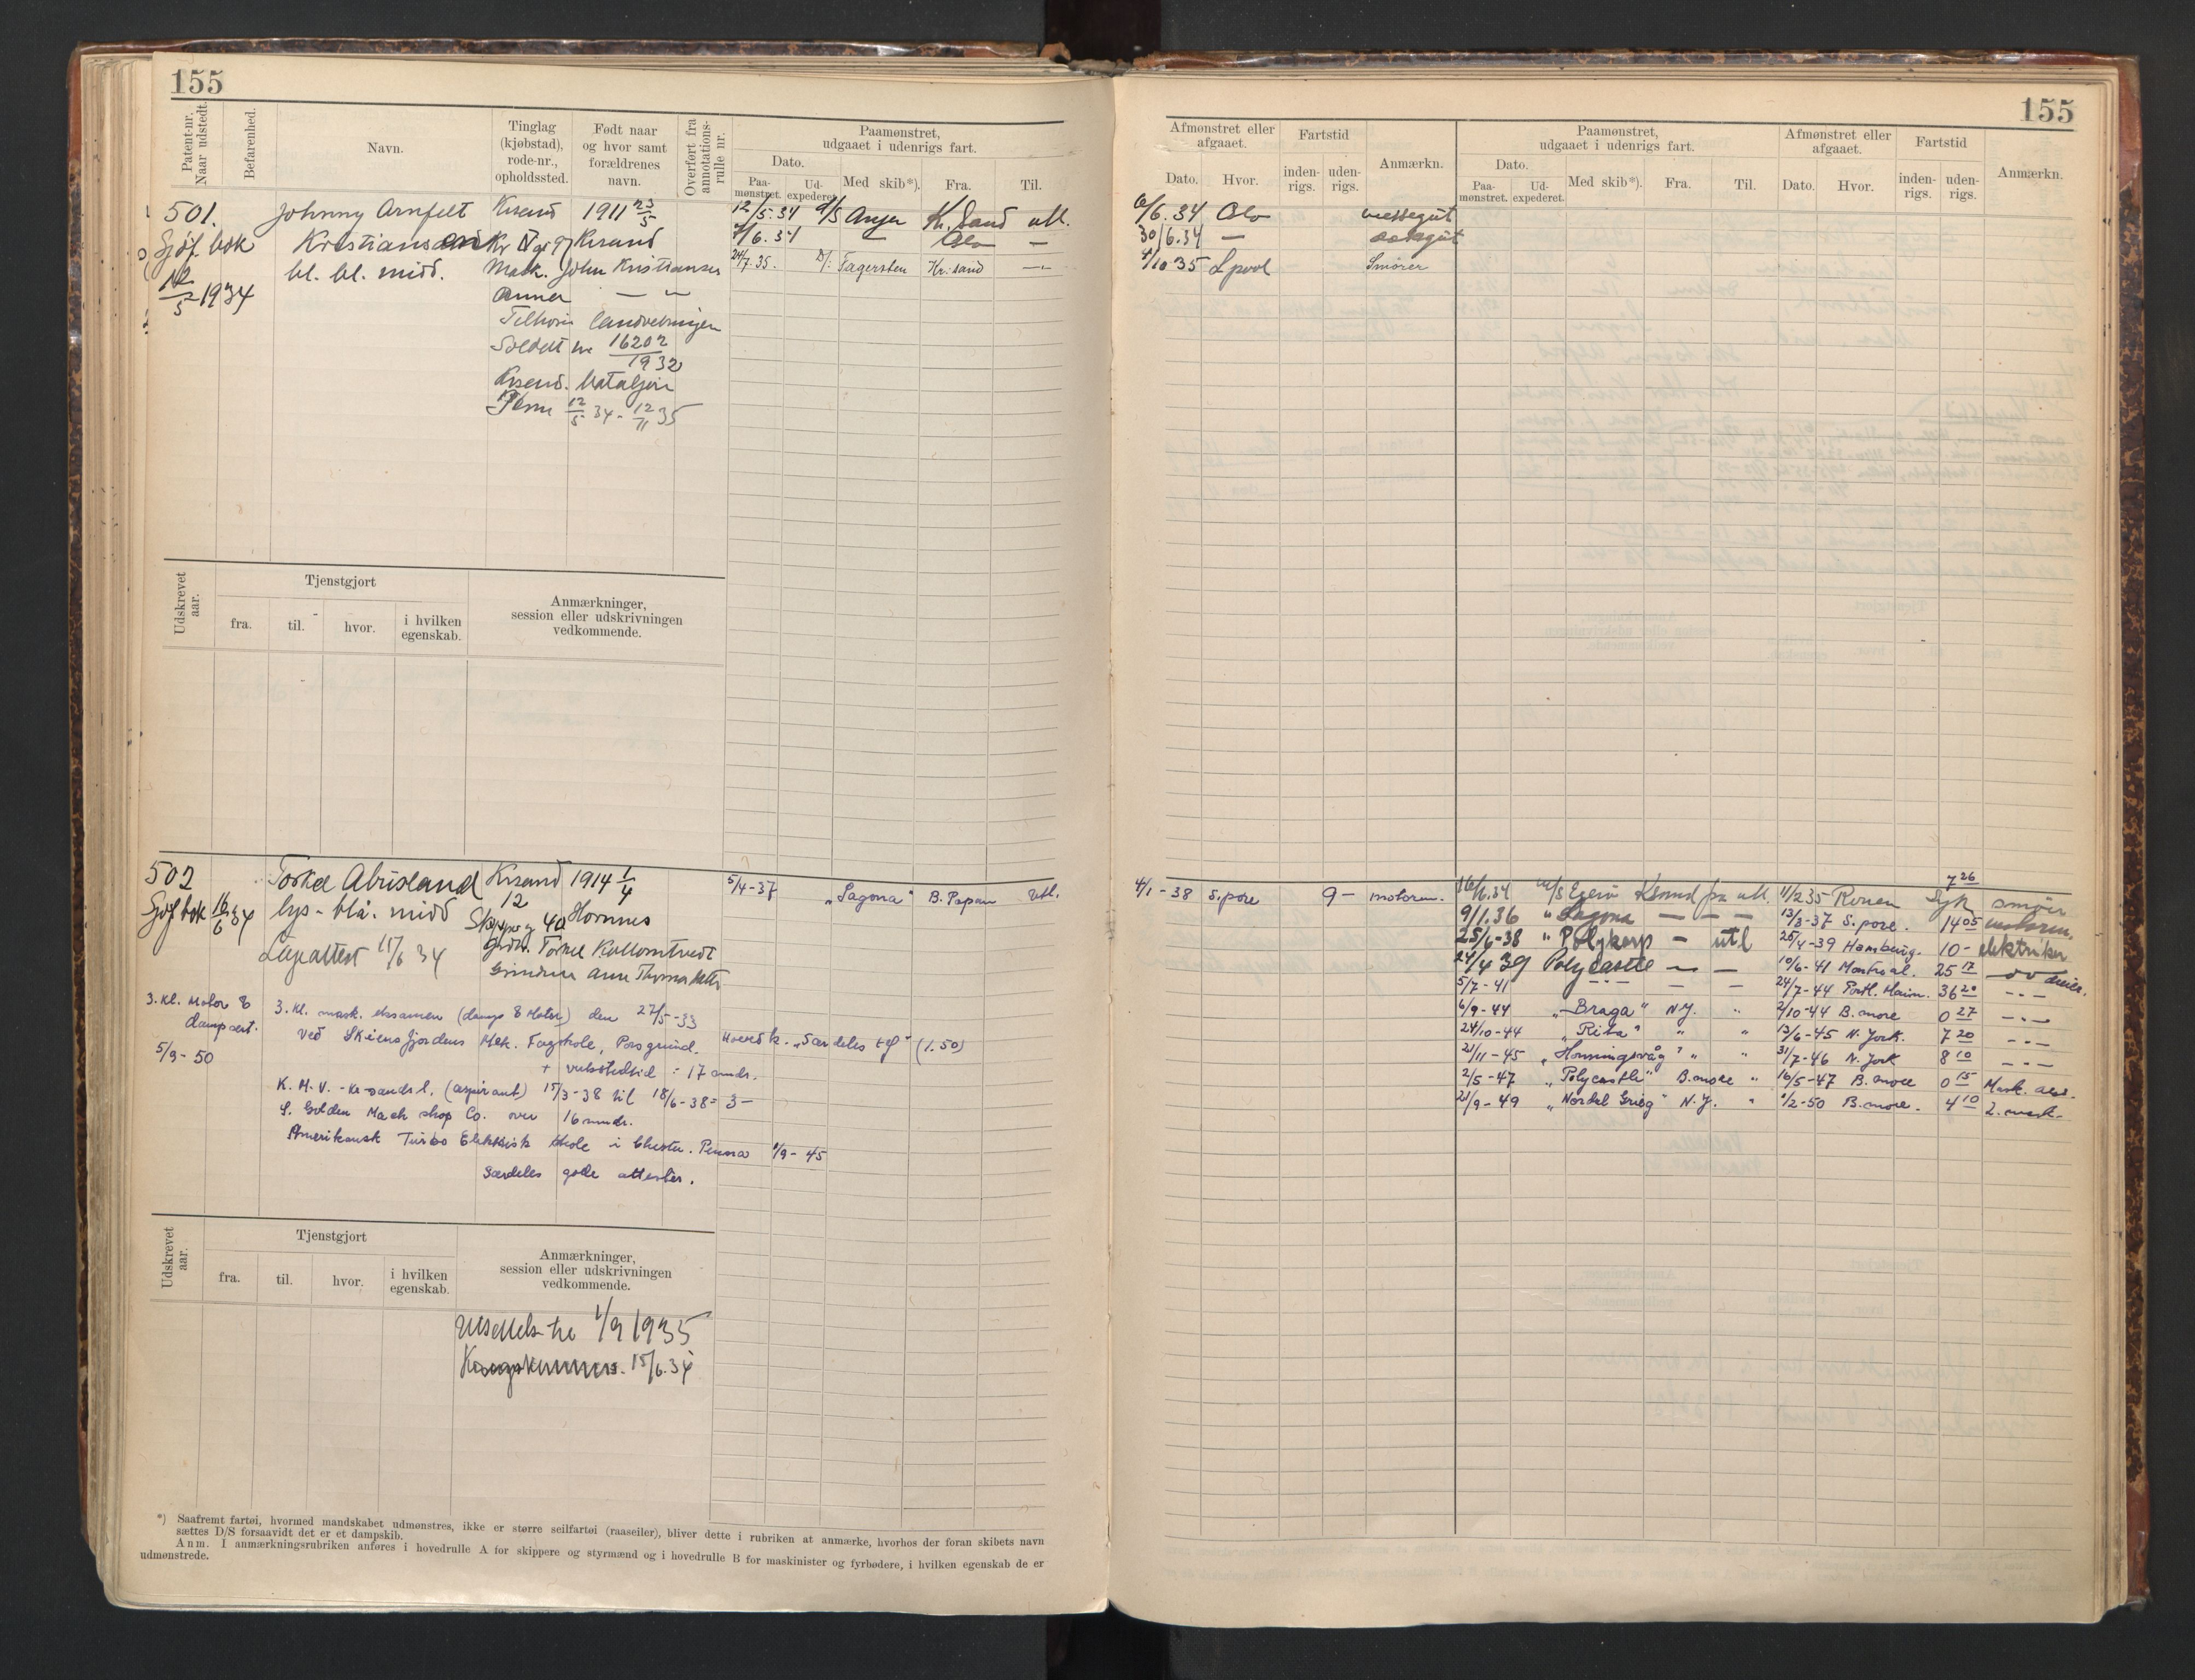 155
Patent-nr. Naar udstedt.
Befarenhed.
Navn.
Tinglag (kjøbstad), rode-nr., opholdssted.
Født naar og hvor samt forældrenes navn.
Overført fra annotations-rulle nr.
Paamønstret, udgaaet i udenrigs fart.
Dato.
Paa-mønstret.
Ud-expederet.
Med skib*).
Fra.
Til.
501. Johnny Arnfelt Krsand 1911 23/5 12/5.34 Kr. Sand utl.
Sjøf. bok Krsand 7/6.34 — Oslo —
bl. bl. midd. Mask. John Kristiansen 24/7.35. D/: Fagersten Kr: sand —
12/5 1934 Anna — "
Soldat nr 16202
1932
Krsand. Bataljon
12/5 34 - 12/11 35
Udskrevet aar.
Tjenstgjort
fra.
til.
hvor.
i hvilken egenskab.
Anmærkninger, session eller udskrivningen vedkommende.
502 Torkel Abusland Krsand 1914 1/4 5/4-37 "Sagona" B. Papan Utl.
Sjøf bok 16/6 34 lys - blå. midd 12 Hornnes
40
Lægeattest 15/6 34
3. kl. Motor & 3. kl. mask. eksamen (damp & Motor) den 27/5-33
dampsert. Ved Skiensfjordens Mek. Fagskole, Porsgrund. Hovedk. "Særdeles tf" (1.50)
5/9-50 + verkstedtid = 17 mndr.
K. M. V. - Kr-sands l. (aspirant) 15/3-38 til 18/6-38 = 3 —
S. Golden Mach shop Co. over 16 mndr.
Amerikansk Turbo Elektrisk skole i Chester. Penna 1/9-45
Særdeles gode attester.
Udskrevet aar.
Tjenstgjort
fra.
til.
hvor.
i hvilken egenskab.
Anmærkninger, session eller udskrivningen vedkommende.
1/9 1935
15/6.34
*) Saafremt fartøi, hvormed mandskabet udmønstres, ikke er større seilfartøi (raaseiler), bliver dette i rubriken at anmærke, hvorhos der foran skibets navn
sættes D/S forsaavidt det er et dampskib.
Anm. I anmærkningsrubriken anføres i hovedrulle A for skippere og styrmænd og i hovedrulle B for maskinister og fyrbødere, i hvilken egenskab de er
udmønstrede.
155
Afmønstret eller afgaaet.
Dato.
Hvor.
Fartstid
inden-rigs.
uden-rigs.
Anmærkn.
Paamønstret, udgaaet i udenrigs fart.
Dato.
Paa-mønstret.
Ud-expederet.
Med skib*).
Fra.
Til.
Afmønstret eller afgaaet.
Dato.
Hvor.
Fartstid
inden-rigs.
uden-rigs.
Anmærkn.
6/6.34 Oslo messegut
30/6.34 — dæksgut
4/10 35 Lpool Smører
7 26
4/1-38 S.pore 9 — motorm. 16/6.34 M/S Egerø utl. 11/2 35 Rouen Syk smører
9/1.36 " Sagona — — — 13/3-37 S.pore. 14 05 motorm.
25/6-38 " Polykarp — utl 25/4-39 Hamburg. 10 - elektriker
24/4 39 Polycastle — — 10/6-41 Montreal. 25 17
5/7-41 — — — 24/7-44 Portl. Maine. 36 20 — " —
6/9-44 "Braga" N.Y. " 2/10-44 B.more 0 27 — " —
24/10-44 "Reita" " " 13/6-45 N. York. 7 20 — " —
21/11-45 "Honningsvåg" " " 31/7-46 N. York 8 10 — " —
2/5-47 "Polycastle" B.more " 16/5-47 B.more 0 15 Mask. ass.
21/9-49 "Nordal Grieg" N.Y. " 1/2-50 B.more. 4 10 2. mask.